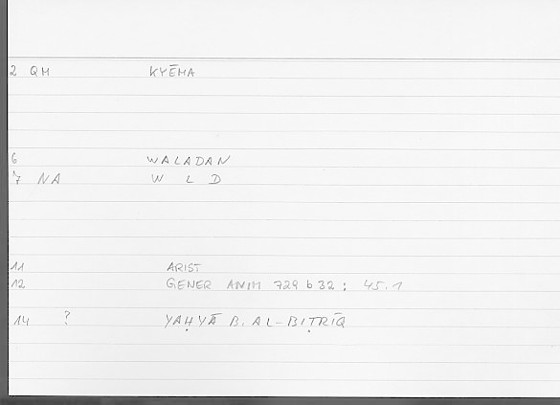 2 QM KYĒMA
6 WALADAN
7 NA W L D
11 ARIST
12 GENER ANIM 729 b 32 : 45.1
14 ? YAḤYĀ B. AL-BIṬRĪQ